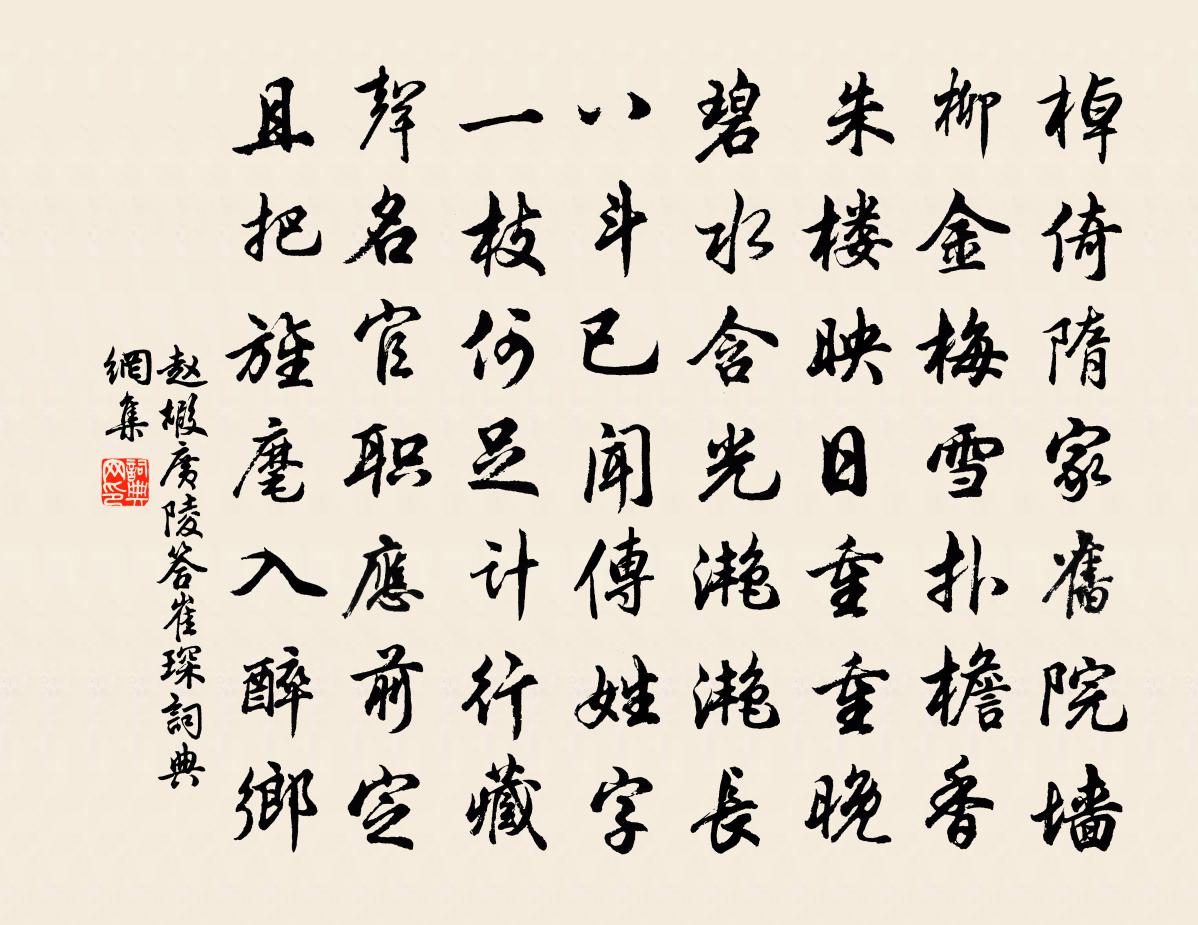 棹倚隋家舊院墙
柳金梅雪扑檐香
朱楼映日重重晚
碧水含光滟滟長
八斗已闻傳姓字
一枝何足计行藏
聲名官职應前定
且把旌麾入醉鄉
赵嘏广陵答崔琛詞典
網集
詞典网印